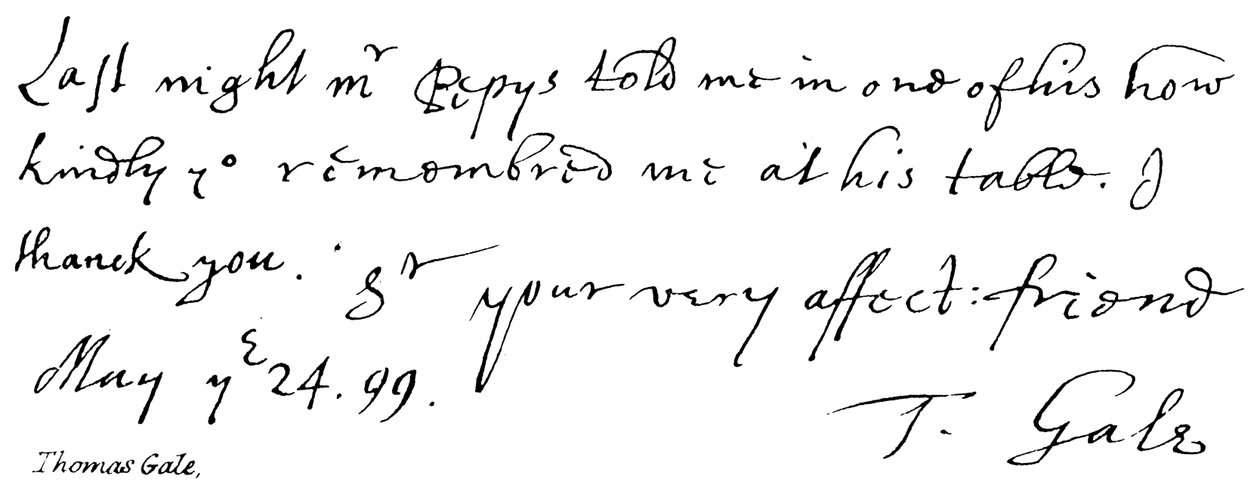 Last night mr Pepys told me in one of his how
kindly yo remembred me at his table. I
thanck you. Sr your very affect: friend
May ye 24. 99.
T. Gale
Thomas Gale,